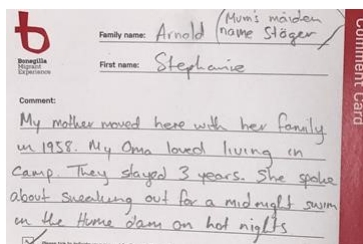 Bonegilla
Migrant
Experience
Family name: Arnold (Mum's maiden
name Stöger
First name: Stephanie
Comment Card
Comment:
My mother moved here with her family
in 1958. My Oma loved living in
Camp. They stayed 3 years. She spoke
about sneaking out for a midnight swim
in the Hume dam on hot nights